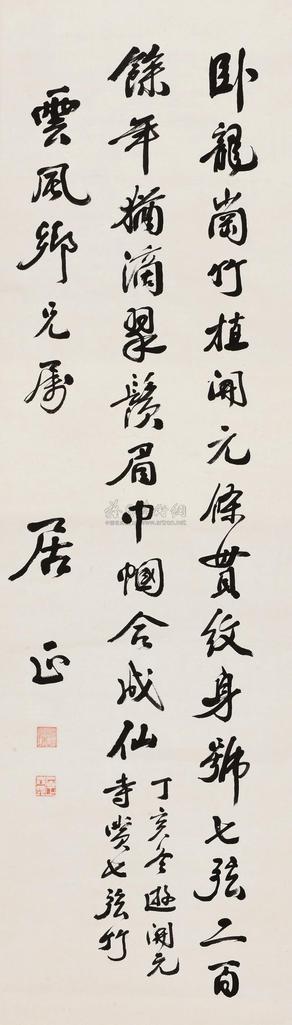 卧龍崗竹植開元條貫紋身號七弦二百
餘年猶滴翠鬚眉巾幗合成仙
丁亥冬遊開元
寺賞七弦竹
雲風鄉兄属
居正